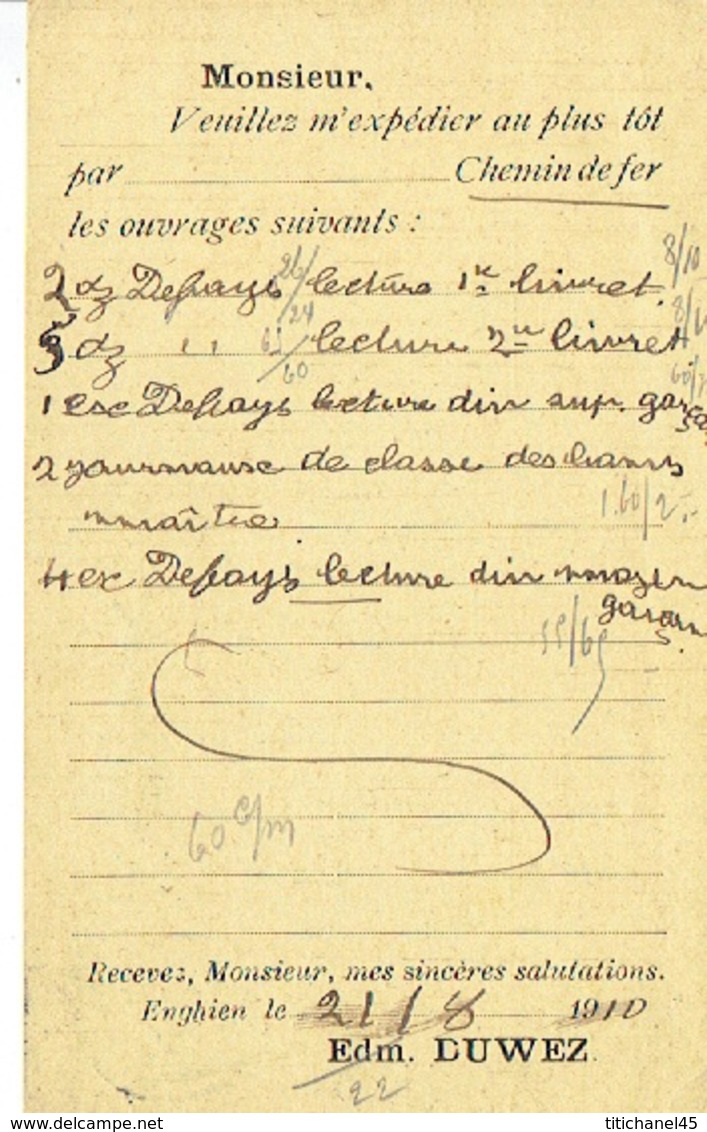 Monsieur,
Veuillez m'expédier au plus tôt
par Chemin de fer
les ouvrages suivants :
8/10
26/24
2 dz Depays lecture 1re livret.
5 dz " 65/60 lecture 2me livret
1 ex Depays lecture div sup. garçons
2 journaux de classe des
maître
1.60/2,-
4 ex Depays lecture div moyen
garçon
55/65
60 c/m
Recevez, Monsieur, mes sincères salutations.
Enghien le 21/8 1910
Edm. DUWEZ
22
titichanel45